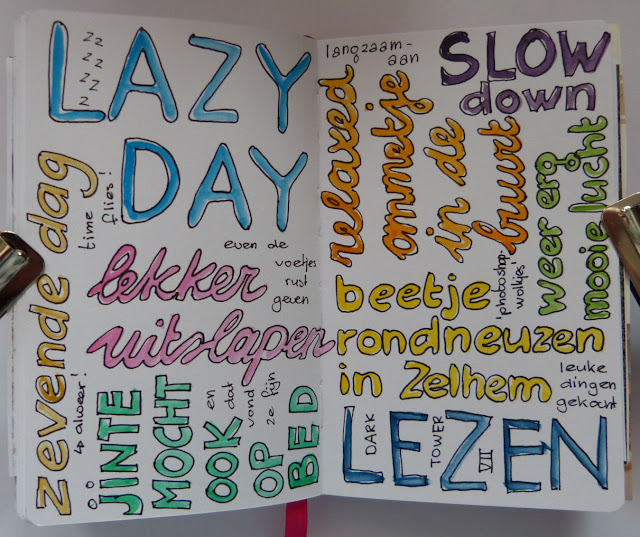 LAZY
zz
zz
zz
z
DAY
zevende dag
↳ alweer!
time
flies!
lekker
uitslapen
even de
voetjes
rust
geven
JINTE
MOCHT
OOK
OP
BED
en
dat
vond
ze fijn
langzaam-
aan
SLOW
down
relaxed
ommetje
in de
buurt
'photoshop-
wolkjes'
weer erg
mooie lucht
beetje
rondneuzen
in Zelhem
leuke
dingen
gekocht
LEZEN
DARK
TOWER
VII